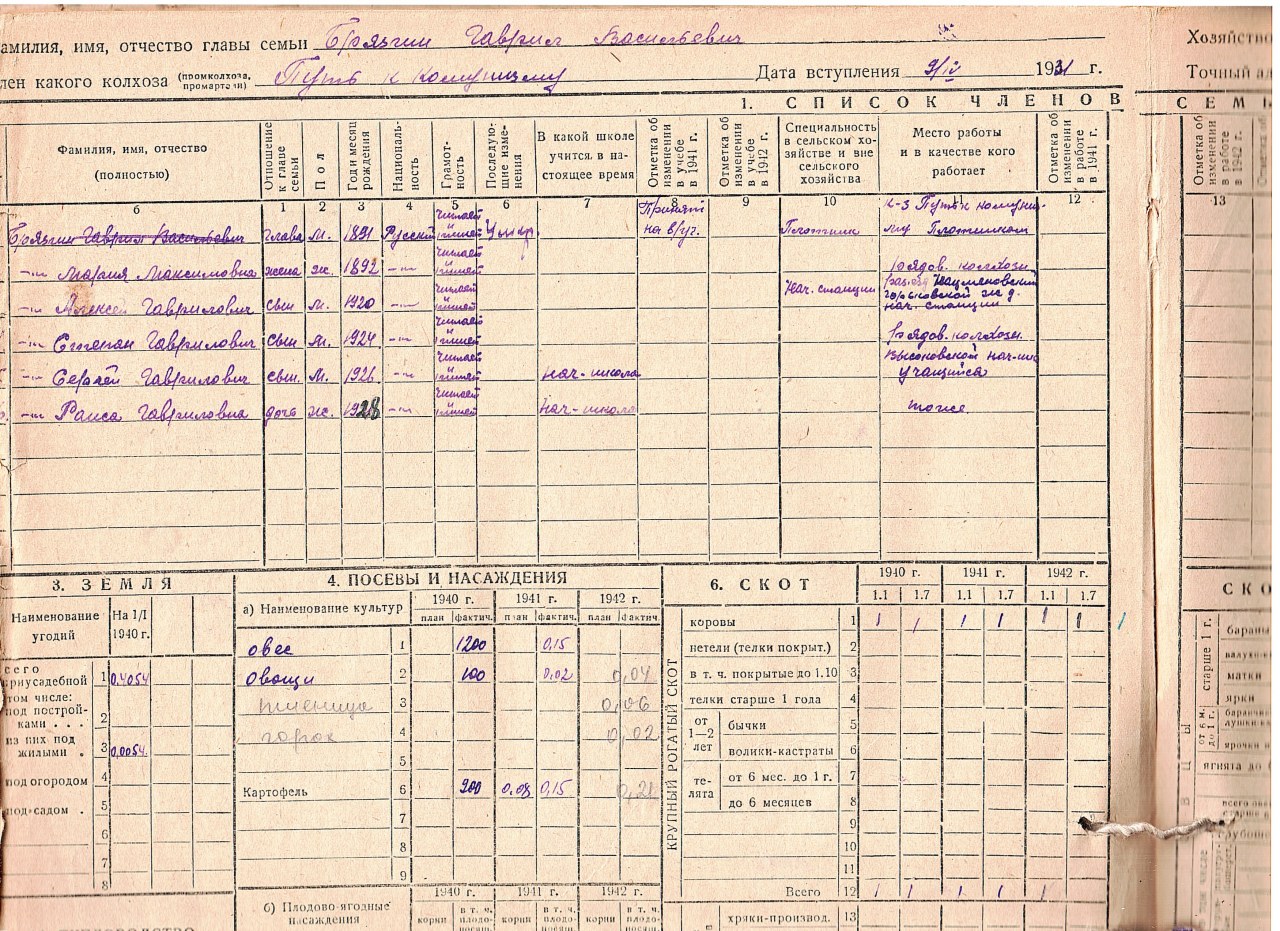 амилия, имя, отчество главы семьи Брязгин Гаврил Васильевич
лен какого колхоза (промколхоза, промартели) Путь к Комунизму Дата вступления 9/IV 1931 г.
Хозяйство
Точный ад
1. СПИСОК ЧЛЕНОВ
СЕМЬ
Фамилия, имя, отчество (полностью)
Отношение к главе семьи
Пол
Год и месяц рождения
Националь-ность
Грамот-ность
Последую-щие изме-нения
В какой школе учится в на-стоящее время
Отметка об изменении в учебе в 1941 г.
Отметка об изменении в учебе в 1942 г.
Специальность в сельском хо-зяйстве и вне сельского хозяйства
Место работы и в качестве кого работает
Отметка об изменении в работе в 1941 г.
Отметка об изменении в работе в 1942 г.
б 1 2 3 4 5 6 7 8 9 10 11 12 13
Брязгин Гаврил Васильевич глава м. 1891 Русский читает пишет Умер Принят на в/уч. Плотник к-з Путь к комуни- Плотником
-"- Мария Максимовна жена ж. 1892 -"- читает пишет рядов. колхозн.
-"- Алексей Гаврилович сын м. 1920 -"- читает пишет Нач. станции разъезд горьковской ж д. нач. станции
-"- Степан Гаврилович сын м. 1924 -"- читает пишет рядов. колхозн.
-"- Сергей Гаврилович сын м. 1926 -"- читает пишет нач-школа учащийся
-"- Раиса Гавриловна дочь ж. 1928 -"- читает пишет нач-школа тоже.
3. ЗЕМЛЯ
Наименование угодий
На 1/I 1940 г.
сего
приусадебной 1 0,4054
том числе:
под построй-ками . . . 2
из них под жилыми . 3 0,0054.
под огородом 4
под садом . 5
6
7
8
4. ПОСЕВЫ И НАСАЖДЕНИЯ
а) Наименование культур
1940 г. 1941 г. 1942 г.
план фактич. план фактич. план фактич.
овес 1 1200 0,15
Овощи 2 100 0.02 0,04
пшеница 3 0,06
горох 4 0,02
5
Картофель 6 900 0.08 0,15 0,21
7
8
9
1940 г. 1941 г. 1942 г.
б) Плодово-ягодные насаждения
корни в т. ч. плодо-носящ. корни в т. ч. плодо-носящ. корни в т. ч. плодо-носящ.
6. СКОТ
1940 г. 1941 г. 1942 г.
1.1 1.7 1.1 1.7 1.1 1.7
КРУПНЫЙ РОГАТЫЙ СКОТ
коровы 1 1 1 1 1 1 1 1
нетели (телки покрыт.) 2
в т. ч. покрытые до 1.10 3
телки старше 1 года 4
от 1—2 лет
бычки 5
волики-кастраты 6
те-лята
от 6 мес. до 1 г. 7
до 6 месяцев 8
9
10
11
Всего 12 1 1 1 1 1
хряки-производ. 13
СКО
старше 1 г.
бараны
валухи
матки
ярки
от 6 м. до 1 г.
ярочки
ягнята до 6